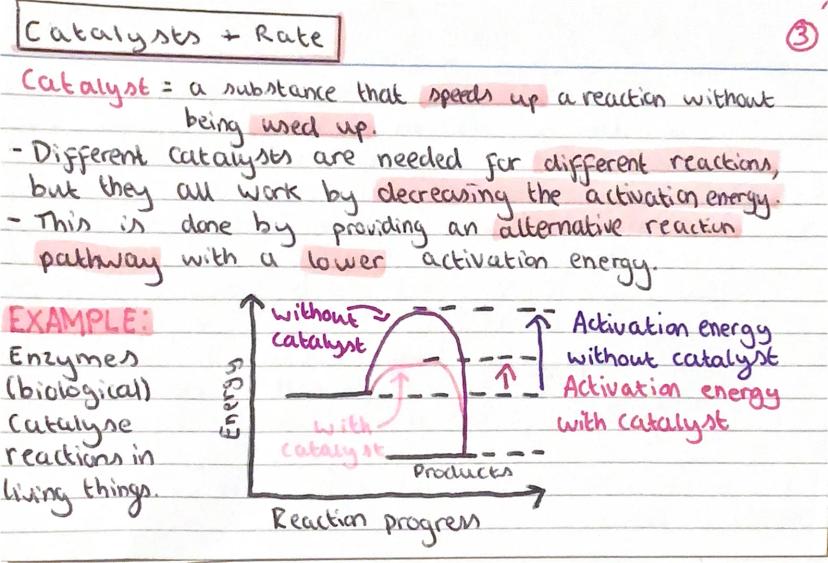 Catalysts + Rate
3
Catalyst = a substance that speeds up a reaction without
being used up.
- Different catalysts are needed for different reactions,
but they all work by decreasing the activation energy.
- This is done by providing an alternative reaction
pathway with a lower activation energy.
EXAMPLE:
Enzymes
(biological)
catalyse
reactions in
living things.
Energy
without
catalyst
with
catalyst
Products
Reaction progress
Activation energy
without catalyst
Activation energy
with catalyst